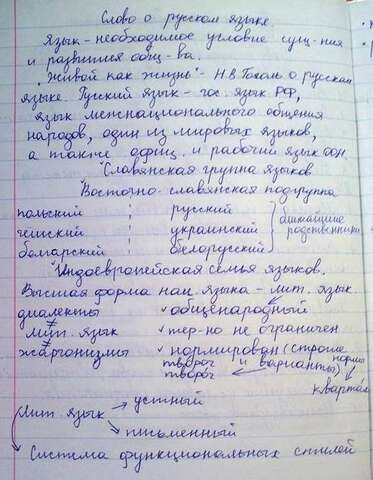 Слово о русском языке.
Язык - необходимое условие сущ-ния
и развития общ-ва.
"Живой как жизнь" - Н.В. Гоголь о русском
языке. Русский язык - гос. язык РФ,
язык межнационального общения
народов, один из мировых языков,
а также офиц. и рабочий язык ООН.
Славянская группа языков
Восточно-славянская подгруппа
польский русский ближайшие
чешский украинский родственники
болгарский белорусский
Индоевропейская семья языков.
Высшая форма нац. языка - лит. язык.
диалекты общенародный
лит. язык тер-но не ограничен
жаргонизмы нормирован (строгие нормы
и варианты)
творог
творог
квартал
Лит. язык устный
письменный
Система функциональных стилей